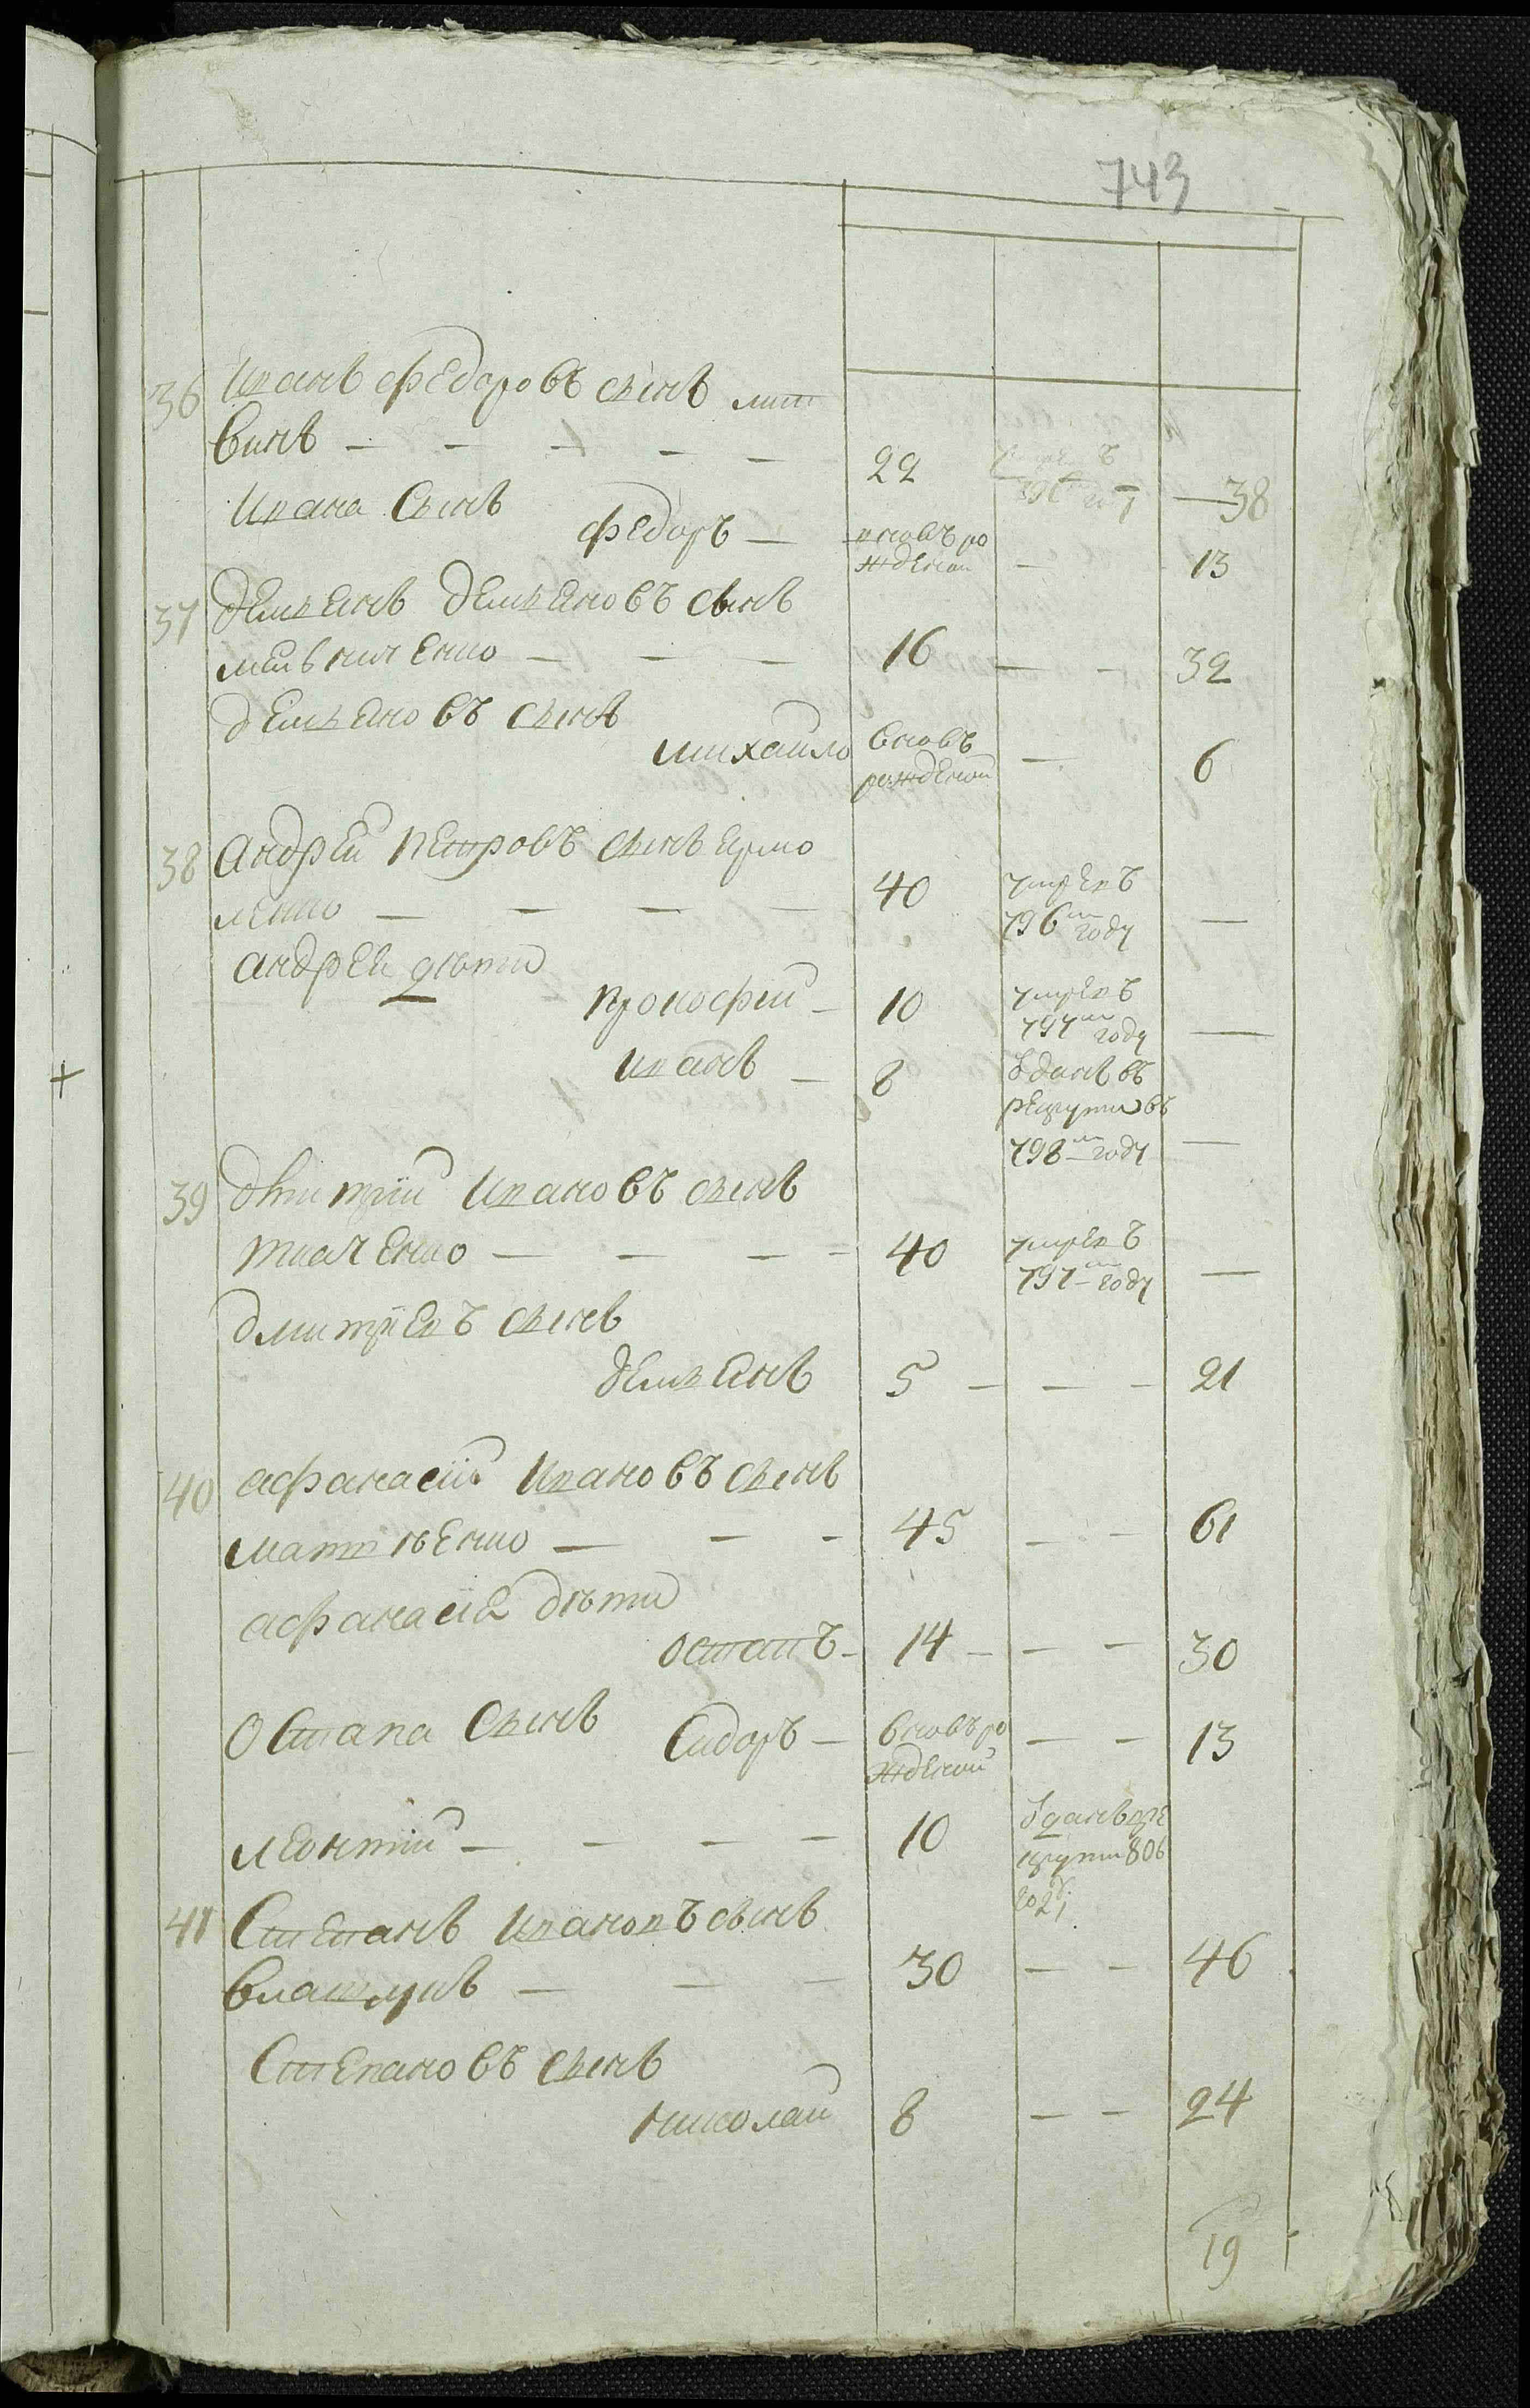 743
36 Иванъ Федоровъ сынъ лит
винъ — — — — — 22 — 38
Ивана Сынъ
Федоръ — вновь ро — 13
жденой
37 демьянъ демьяновъ сынъ
мельниченко — — — 16 — — 32
демьяновъ сынъ
михайло вновь — 6
рожденой
38 андрей петровъ сынъ ермо
ленко — — — — 40 умревъ
796м году —
андрея дѣти
прокофий — 10 умревъ
797м году —
иванъ — 8 Отданъ въ
рекруты въ
798м году —
39 дмитрий Ивановъ сынъ
ткаченко — — — — 40 умревъ
797м году —
дмитриевъ сынъ
демьянъ 5 — — — 21
40 афанасий Ивановъ сынъ
матвѣенко — — — 45 — — 61
афанасия дѣти
остапъ — 14 — — — 30
Остапа Сынъ Сидоръ — вновь ро — — 13
жденой
леонтий — — — — 10 Отданъ вре
круты 806
году
41 Степанъ Ивановъ сынъ
— — — 30 — — 46
Степановъ сынъ
николай 8 — — 24
19